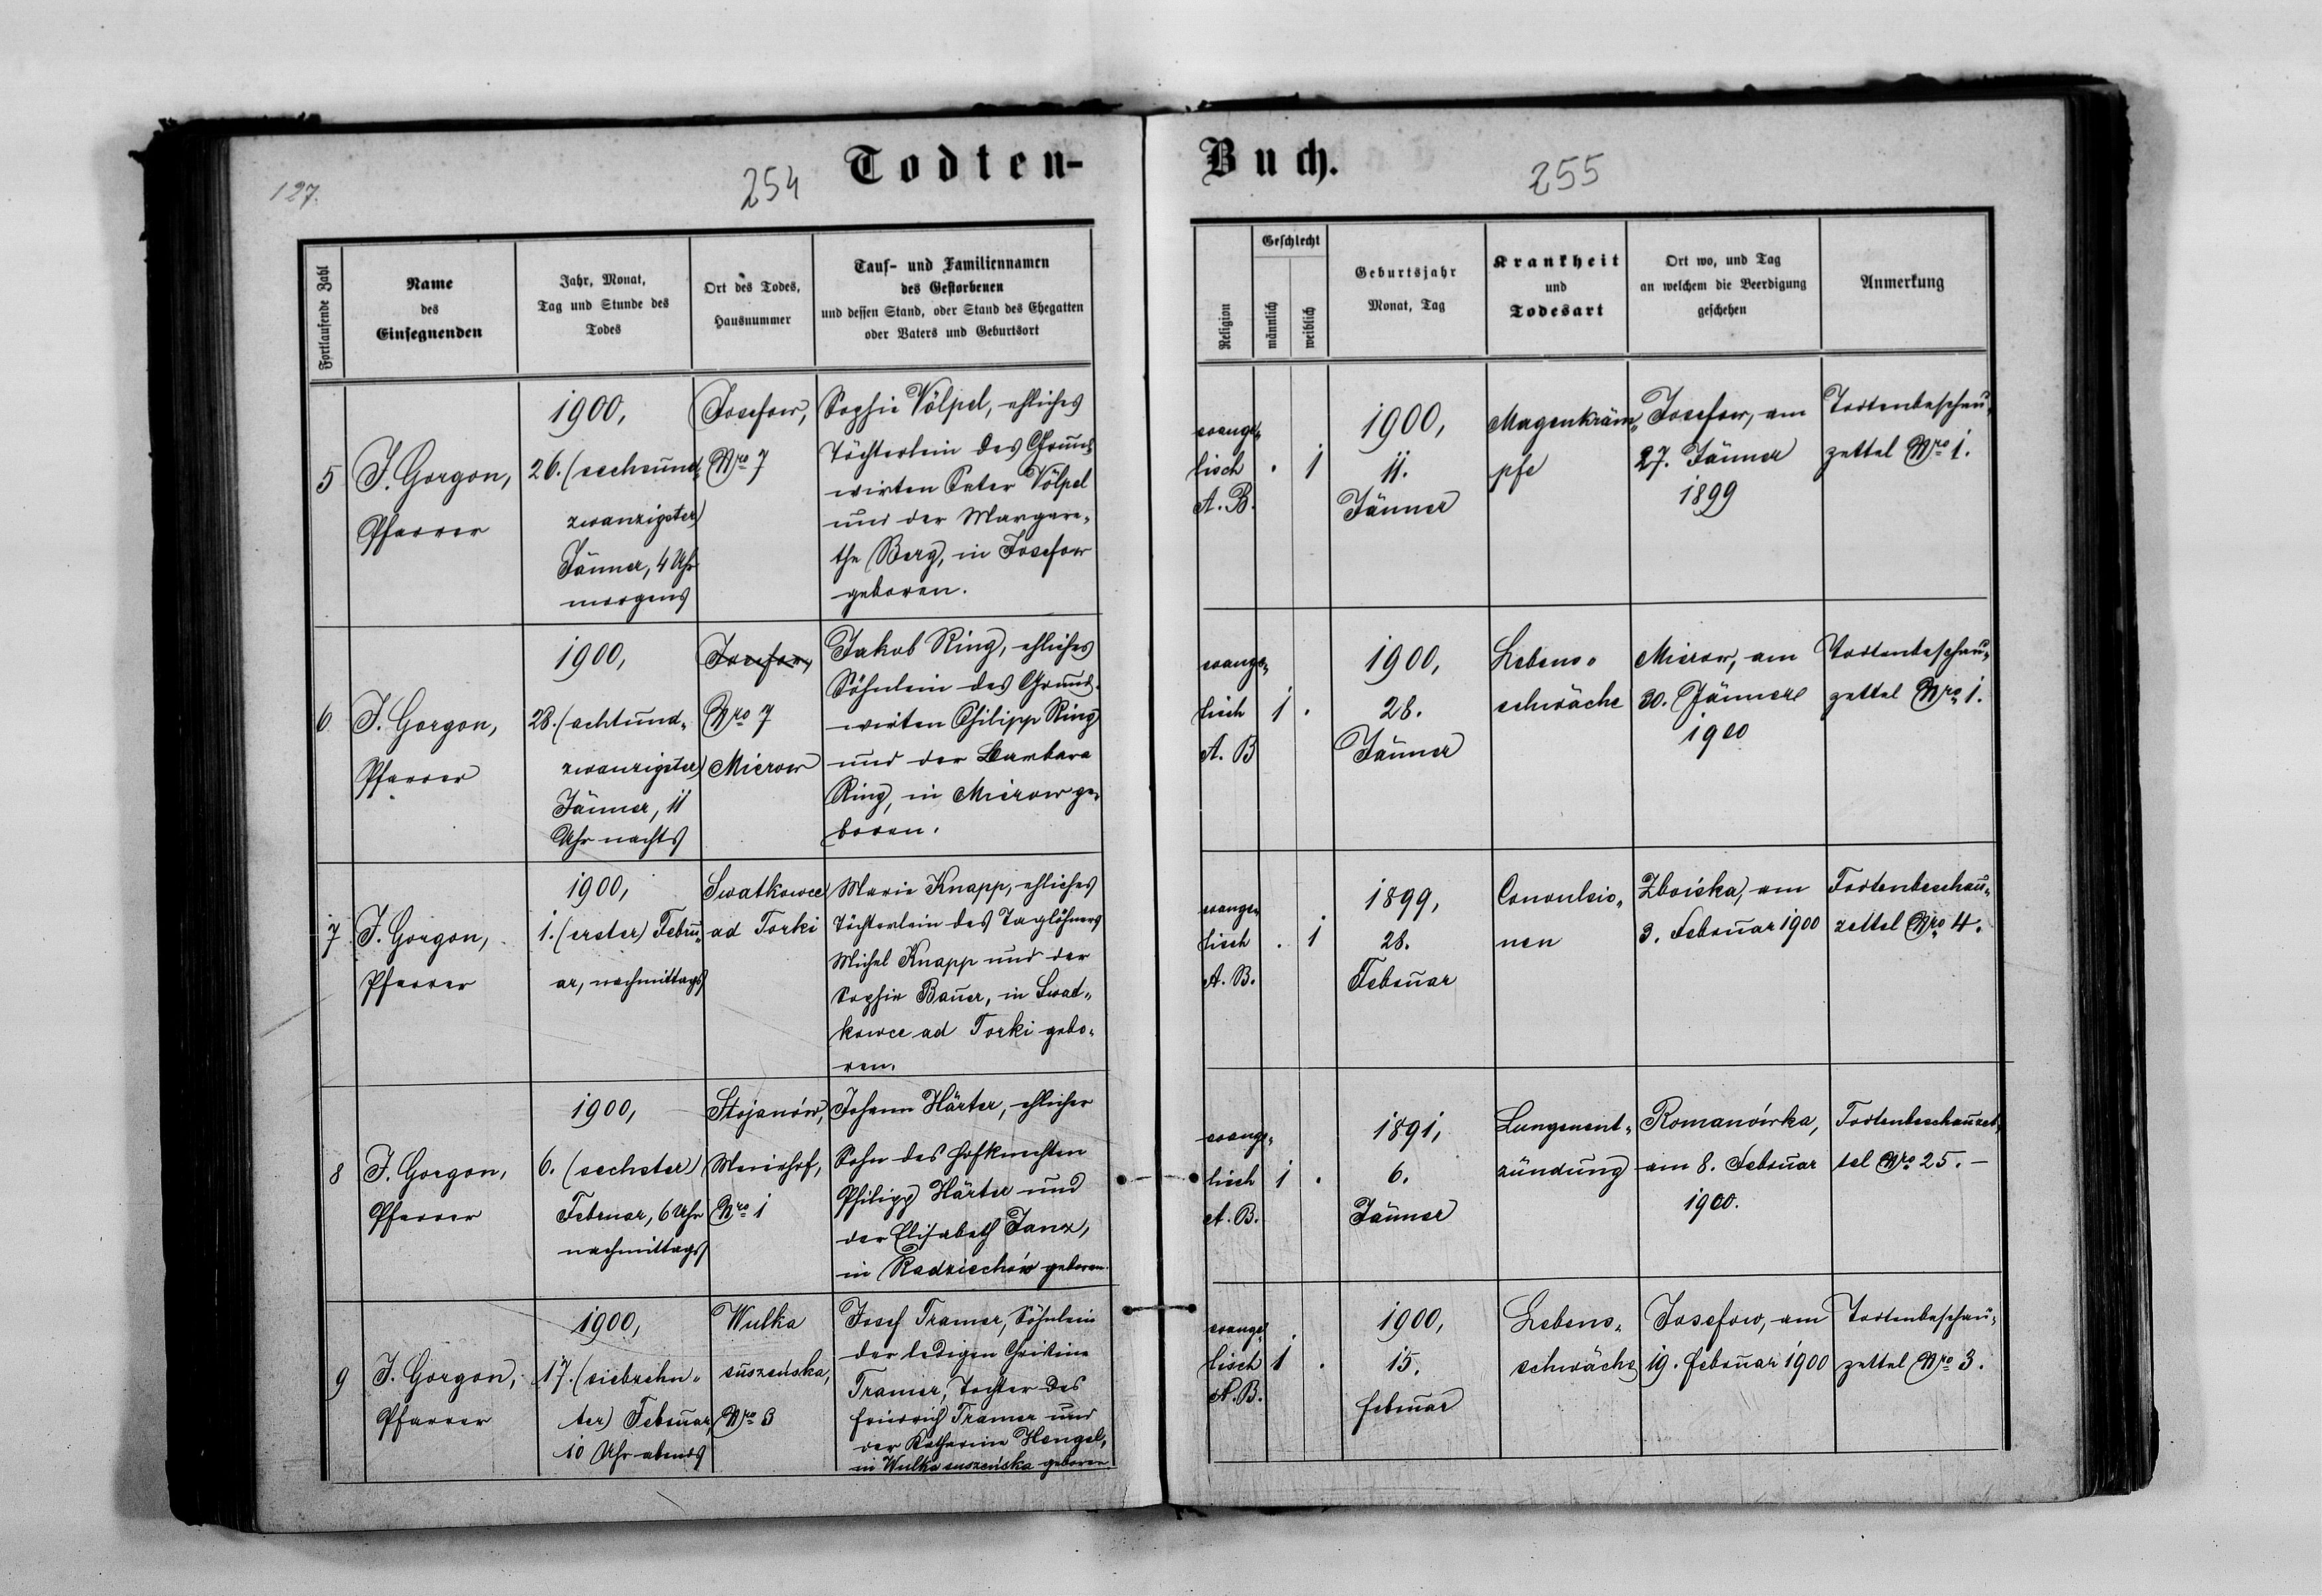 127.
254
Todten-
Buch.
255
Fortlaufende Zahl
Name
des
Einsegnenden
Jahr, Monat,
Tag und Stunde des
Todes
Ort des Todes,
Hausnummer
Tauf- und Familiennamen
des Gestorbenen
und dessen Stand, oder Stand des Ehegatten
oder Vaters und Geburtsort
Religion
Geschlecht
männlich
weiblich
Geburtsjahr
Monat, Tag
Krankheit
und
Todesart
Ort wo, und Tag
an welchem die Beerdigung
geschehen
Anmerkung
5
J. Gorgon,
Pfarrer
1900,
26. (sechsund„
zwanzigster)
Jänner, 4 Uhr
morgens
Josefow,
Nro 7
Sophie Völpel, ehliches
Töchterlein des Grund„
wirten Peter Völpel
und der Margare„
the Berg, in Josefow
geboren.
evange„
lisch
A. B.
.
1
1900,
11.
Jänner
Magenkräm„
pfe
Josefow, am
27. Jänner
1899
Todtenbeschau„
zettel Nro 1.
6
J. Gorgon,
Pfarrer
1900,
28. (achtund„
zwanzigster)
Jänner, 11
Uhr nachts
Josefow,
Nro 7
Mierow
Jakob Ring, ehliches
Söhnlein des Grund„
wirten Philipp Ring
und der Barbara
Ring, in Mierow ge„
boren.
evange„
lisch
A. B
1
.
1900,
28.
Jänner
Lebens„
schwäche
Mierow, am
30. Jänner
1900
Todtenbeschau„
zettel Nro 1.
7
J. Gorgon,
Pfarrer
1900,
1. (erster) Febru„
ar, nachmittags
Swatkowce
ad Torki
Marie Knapp, ehliches
Töchterlein des Taglöhners
Michel Knapp und der
Sophie Bauer, in Swat„
kowce ad Torki gebo„
ren.
evange„
lisch
A. B.
.
1
1899,
28.
Februar
Convulsio„
nen
Zboiska, am
3. Februar 1900
Todtenbeschau„
zettel Nro 4.
8
J. Gorgon,
Pfarrer
1900,
6. (sechster)
Februar, 6 Uhr
nachmittags
Stojanów,
Meierhof,
Nro 1
Johann Härter, ehlicher
Sohn des Hofknechten
Philipp Härter und
der Elisabeth Janz,
in Radziechów geboren.
evange„
lisch
A. B.
1
.
1891,
6.
Jänner
Lungenent„
zündung
Romanówka,
am 8. Februar
1900.
Todtenbeschauzet„
tel Nro 25. –
9
J. Gorgon,
Pfarrer
1900,
17. (siebzehn„
ter) Februar,
10 Uhr abends
Wulka
suszeńska,
Nro 3
Josef Tramer, Söhnlein
der ledigen Christine
Tramer, Tochter des
Friedrich Tramer und
der Katharina Hengel,
in Wulka suszeńska geboren.
evange„
lisch
A. B.
1
.
1900,
15.
Februar
Lebens„
schwäche
Josefow, am
19. Februar 1900
Todtenbeschau„
zettel Nro 3.